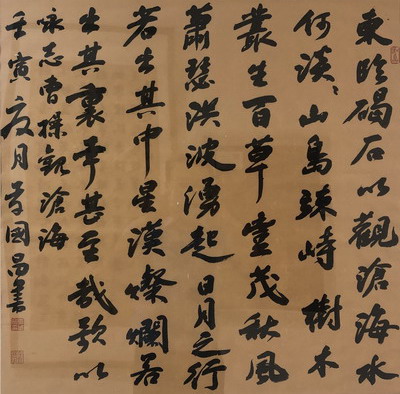 東臨碣石以觀滄海水
何淡淡山島竦峙樹木
叢生百草豐茂秋風
蕭瑟洪波湧起日月之行
若出其中星漢燦爛若
出其裏幸甚至哉歌以
咏志曹操觀滄海
壬寅夏月國昌書